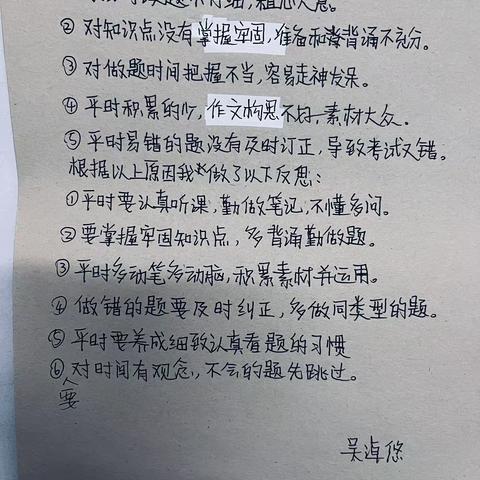 ②对知识点没有掌握牢固,准备和背诵不充分。
③对做题时间把握不当,容易走神发呆。
④平时积累的少,作文构思不好,素材大众。
⑤平时易错的题没有及时订正,导致考试又错。
根据以上原因我做了以下反思:
①平时要认真听课,勤做笔记,不懂多问。
②要掌握牢固知识点,多背诵勤做题。
③平时多动笔多动脑,积累素材并运用。
④做错的题要及时纠正,多做同类型的题。
⑤平时要养成细致认真看题的习惯
⑥对时间有观念,不会的题先跳过。
要
吴淖悠